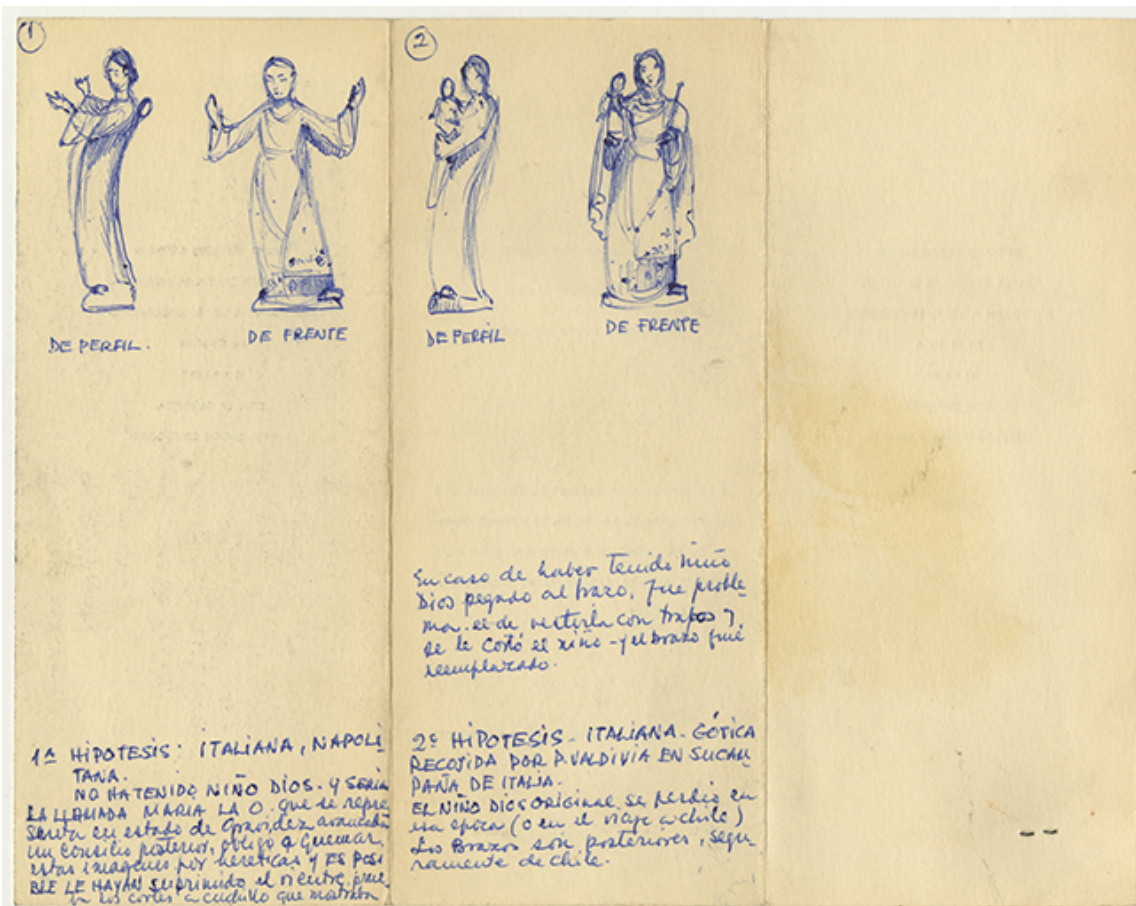 1
DE PERFIL.
DE FRENTE
1ª HIPOTESIS: ITALIANA, NAPOLI
TANA.
NO HA TENIDO NIÑO DIOS. Y SERIA
LA LLAMADA MARIA LA O. que se repre
senta en estado de Gravidez avanzada
un Consilio posterior, obligo a quemar
estas imagenes por hereticas y ES POSI
BLE LE HAYAN suprimido el vientre,
los cortes a cuchillo que mostraba
2
DE PERFIL
DE FRENTE
En caso de haber tenido niño
Dios pegado al brazo, fue proble
ma el de vestirla con trapos y
se le cortó el niño - y el brazo fué
reemplazado.
2ª HIPOTESIS - ITALIANA. GÓTICA
RECOJIDA POR P. VALDIVIA EN SU CAM
PAÑA DE ITALIA.
EL NIÑO DIOS ORIGINAL se perdio en
esa epoca (o en el viaje a chile)
Los Brazos son posteriores, segu
ramente de chile.